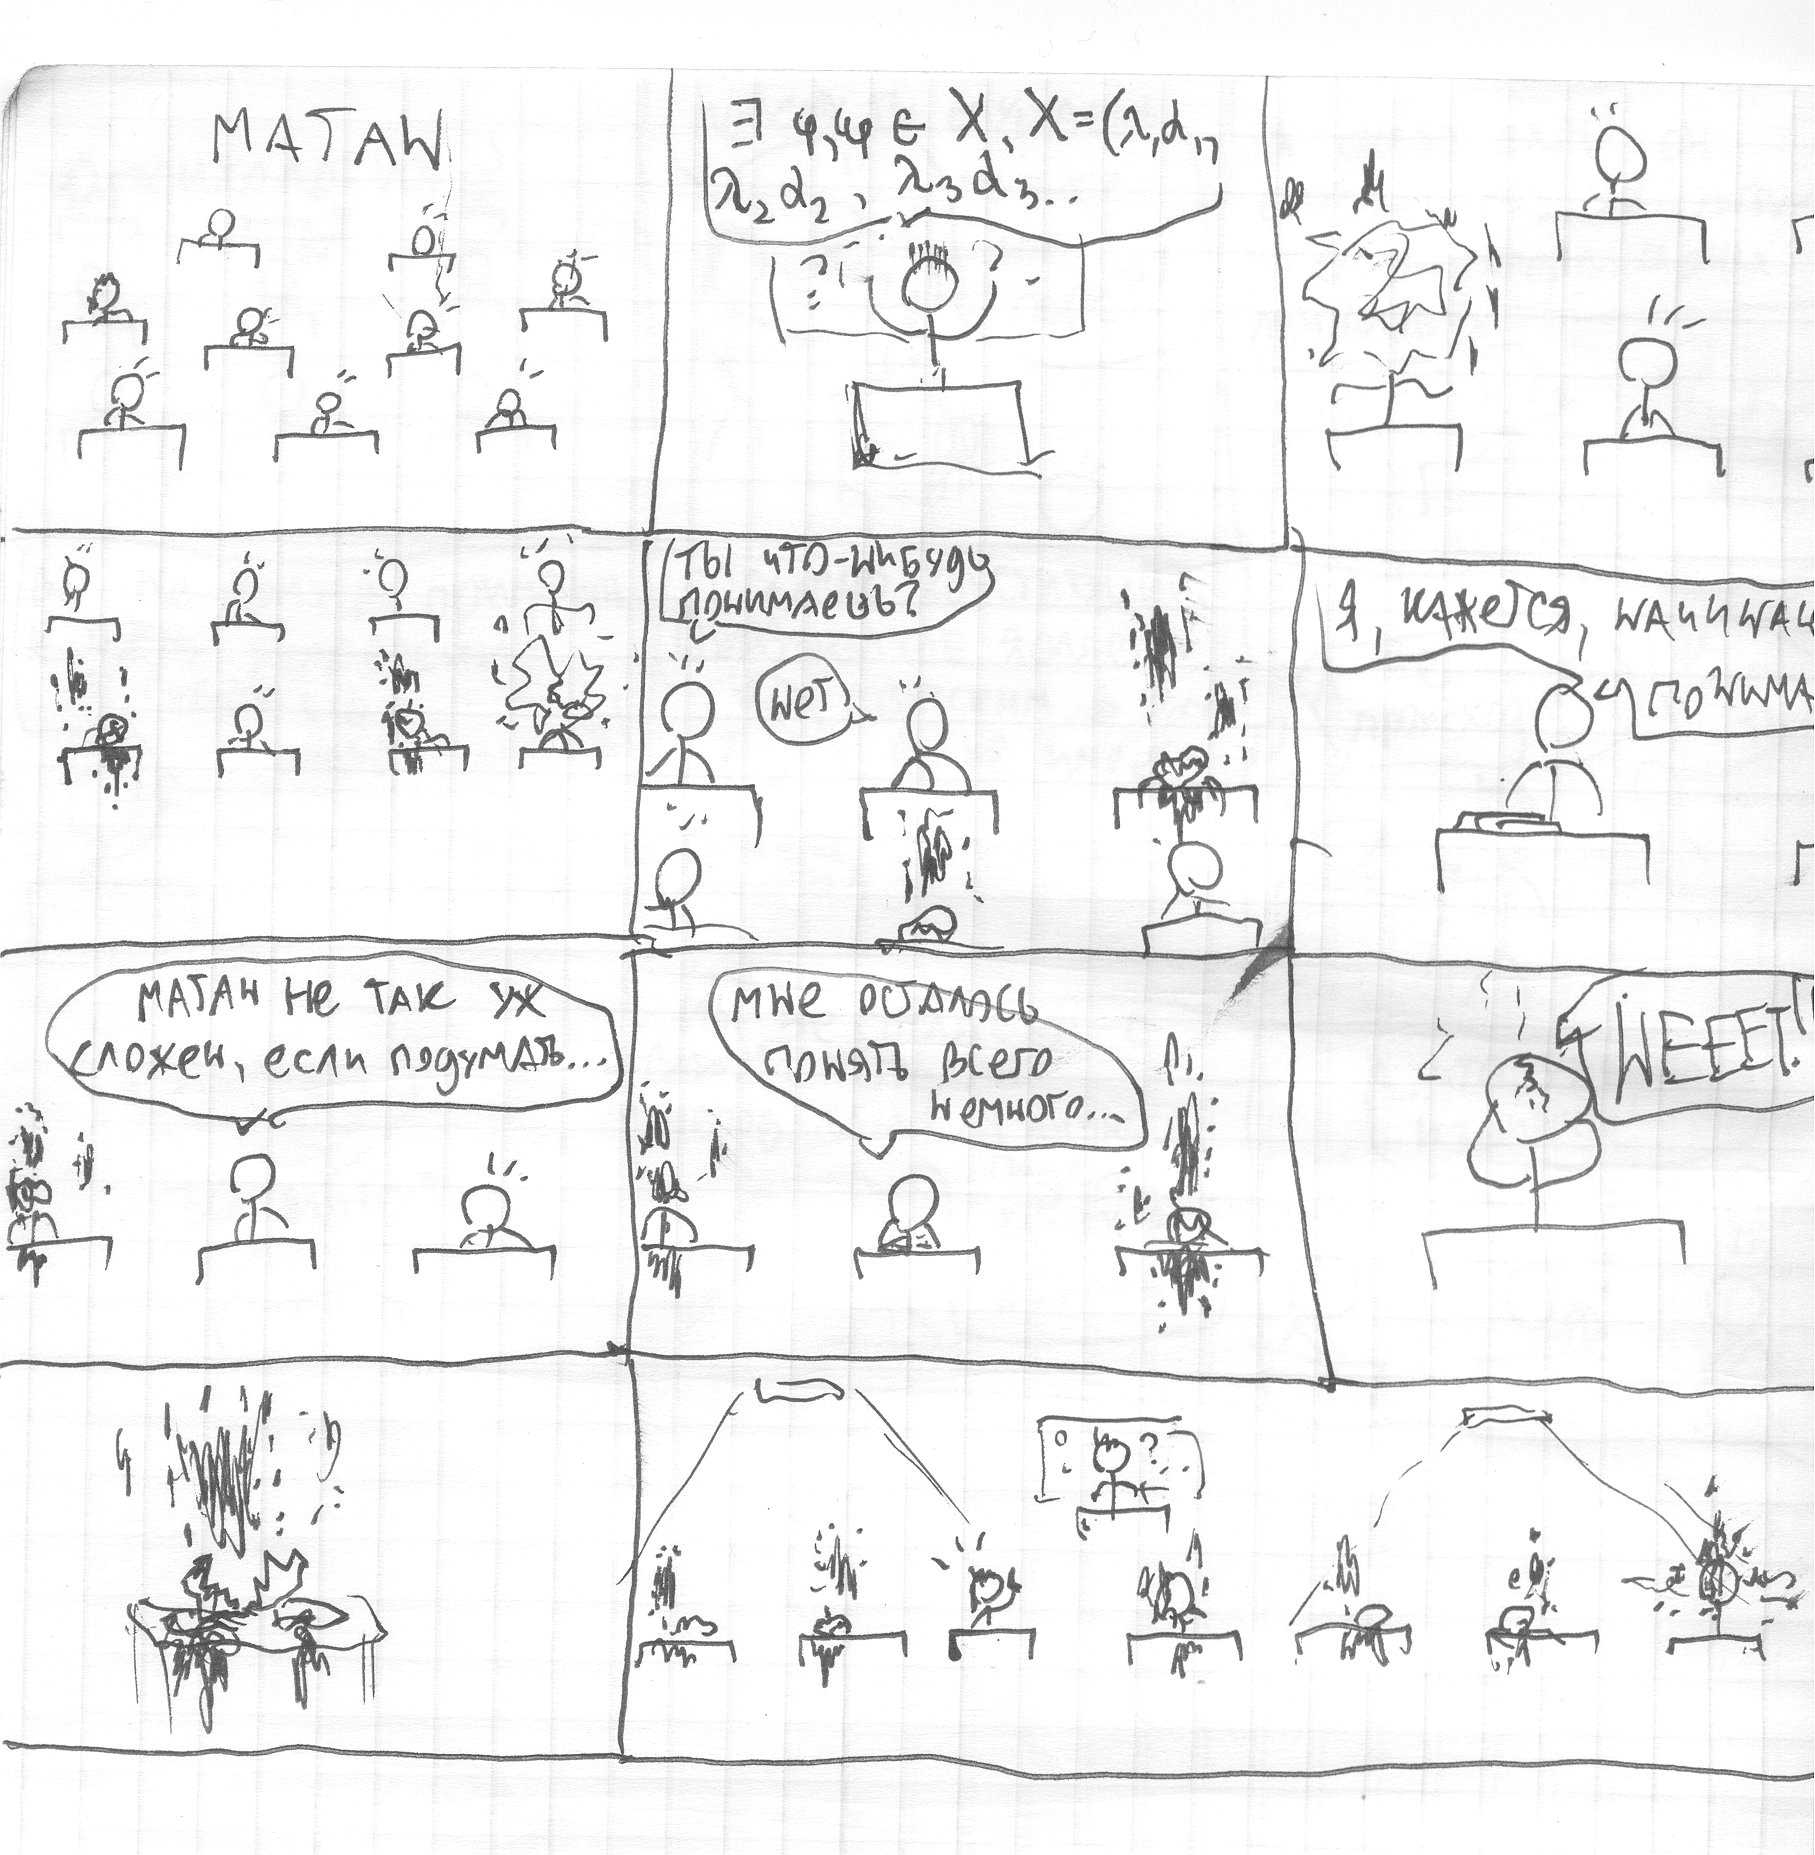 МАТАН
∃ φ,ψ ∈ X, X=(λ₁α₁,
λ₂α₂, λ₃α₃...
ТЫ ЧТО-НИБУДЬ
ПОНИМАЕШЬ?
НЕТ
Я, КАЖЕТСЯ, НАЧИНАЮ
ПОНИМА
МАТАН НЕ ТАК УЖ
СЛОЖЕН, ЕСЛИ ПОДУМАТЬ...
МНЕ ОСТАЛОСЬ
ПОНЯТЬ ВСЕГО
НЕМНОГО...
НЕЕЕЕТ!!